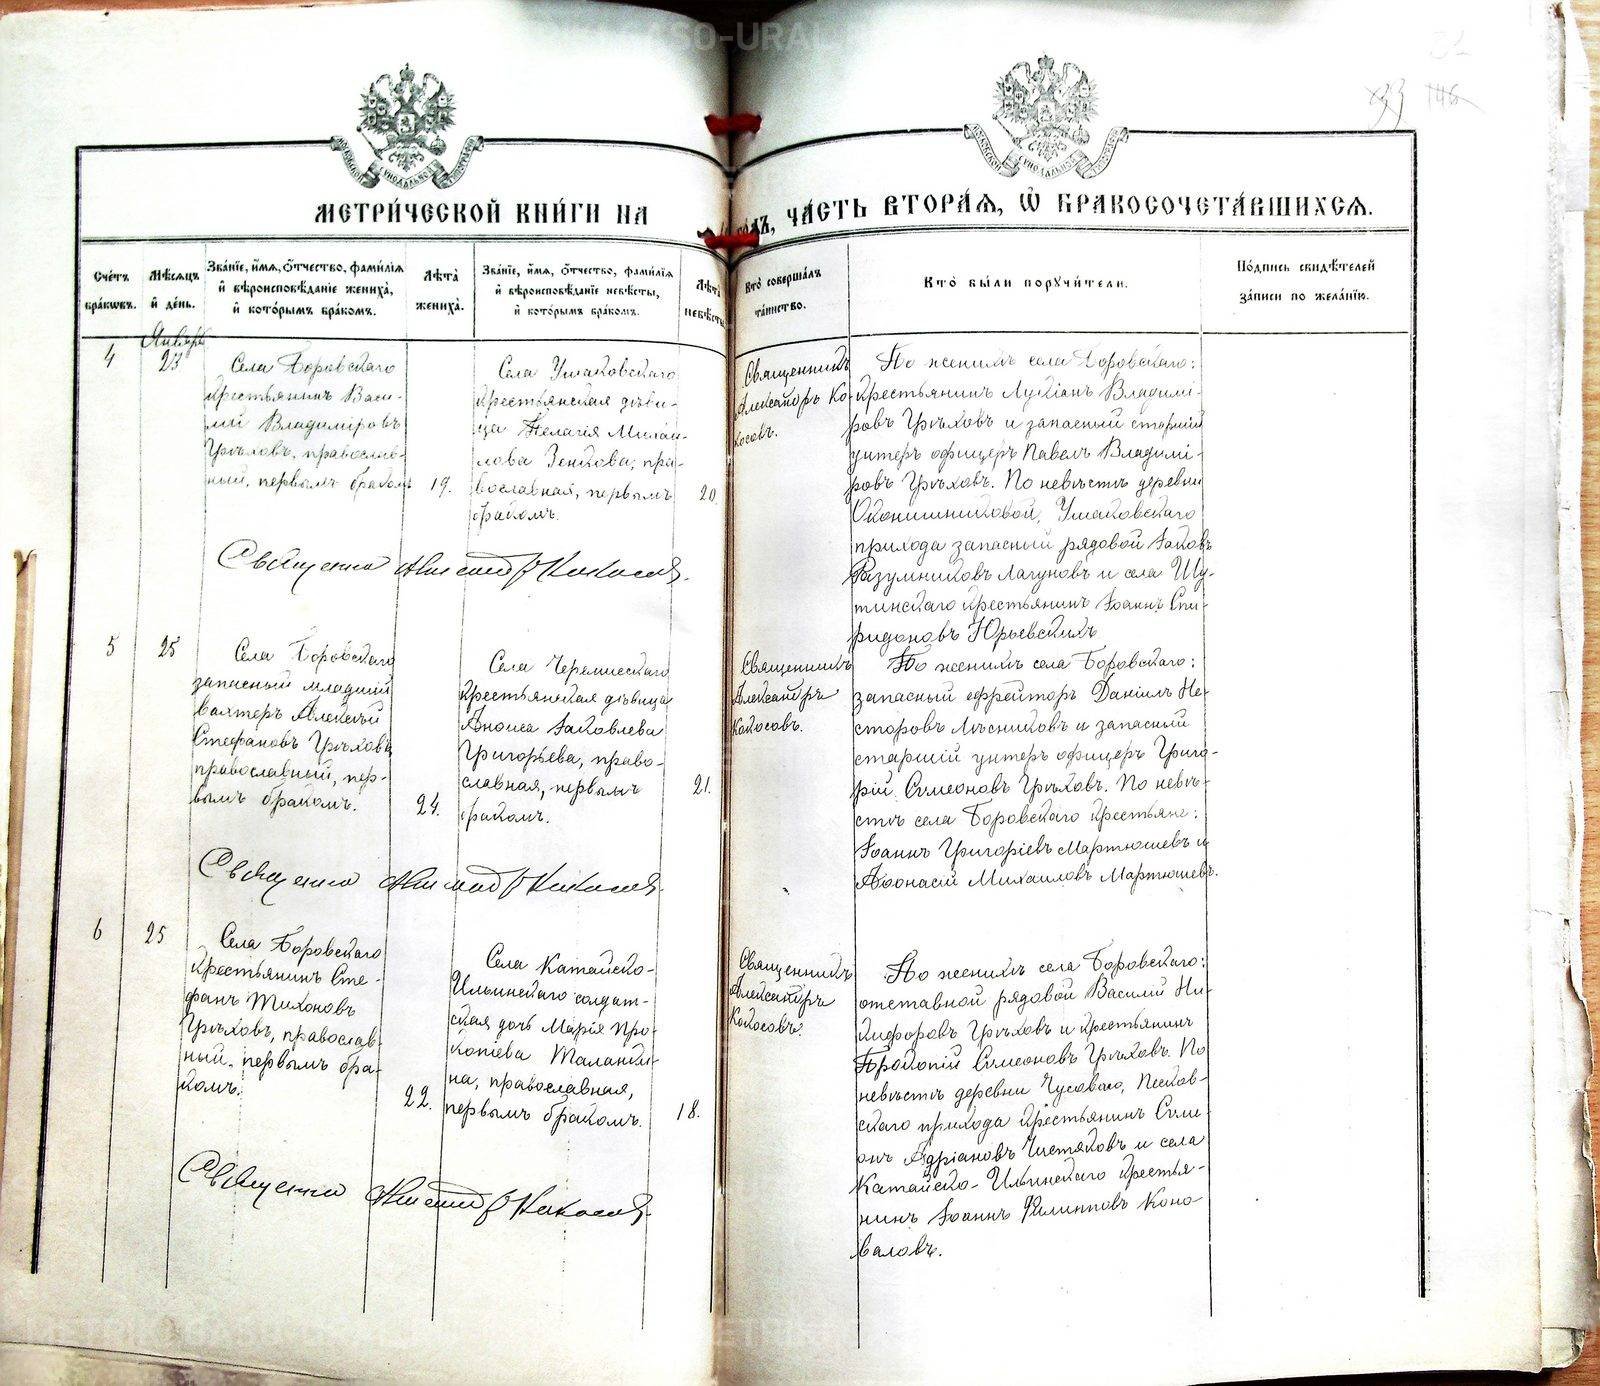 МЕТРИ́ЧЕСКОЙ КНИ́ГИ НА
ГОДЪ, ЧА́СТЬ ВТОРА́Я, Ѡ҆ БРАКОСОЧЕТА́ВШИХСЯ.
Сче́тъ бра́кѡвъ.
Мѣ́сяцъ и҆ де́нь.
Зва́нїе, и҆́мя, ѻ҆́тчество, фами́лїя
и҆ вѣроисповѣ́данїе жениха̀,
и҆ кото́рымъ бра́комъ.
Лѣ́та̀ жениха̀.
Зва́нїе, и҆́мя, ѻ҆́тчество, фами́лїя
и҆ вѣроисповѣ́данїе невѣ́сты,
и҆ кото́рымъ бра́комъ.
Лѣ́та̀ невѣ́сты
Кто̀ соверша́лъ
та́инство.
Кто̀ бы́ли порꙋчи́тели.
По́дпись свидѣ́телей
за́писи по жела́нїю.
Январь
4
23
Села Боровскаго
крестьянинъ Васи-
лій Владиміровъ
Грѣховъ, православ-
ный, первымъ бракомъ
19.
Села Ушаковскаго
крестьянская дѣви-
ца Пелагія Михаи-
лова Зенкова, пра-
вославная, первымъ
бракомъ.
20
Священникъ
Александръ Ко-
косовъ.
По женихѣ села Боровскаго:
крестьянинъ Лукіанъ Владимі-
ровъ Грѣховъ и запасный старшій
унтеръ офицеръ Павелъ Владимі-
ровъ Грѣховъ. По невѣстѣ деревни
Оконишниковой, Ушаковскаго
прихода запасный рядовой Іаковъ
Разумниковъ Лагуновъ и села Шу-
тинскаго крестьянинъ Іоаннъ Спи-
ридоновъ Юрьевскихъ
Священникъ Александръ Кокосовъ.
5
25
Села Боровскаго
запасный младшій
вахтеръ Алексѣй
Стефановъ Грѣховъ
православный, пер-
вымъ бракомъ.
24.
Села Черемисскаго
крестьянская дѣвица
Анфиса Іаковлева
Григорьева, право-
славная, первымъ
бракомъ.
21.
Священникъ
Александръ
Кокосовъ.
По женихѣ села Боровскаго:
запасный ефрейторъ Даніилъ Не-
сторовъ Лѣсниковъ и запасный
старшій унтеръ офицеръ Григо-
рій Сѵмеоновъ Грѣховъ. По невѣ-
стѣ села Боровскаго крестьяне:
Іоаннъ Григоріевъ Мартюшевъ и
Аѳонасій Михаиловъ Мартюшевъ.
Священникъ Александръ Кокосовъ.
6
25
Села Боровскаго
крестьянинъ Сте-
фанъ Тихоновъ
Грѣховъ, православ-
ный, первымъ бра-
комъ.
22.
Села Катайско-
Ильинскаго солдат-
ская дочь Марія Про-
копіева Таланки-
на, православная,
первымъ бракомъ.
18.
Священникъ
Александръ
Кокосовъ.
По женихѣ села Боровскаго:
отставной рядовой Василій Ни-
кифоровъ Грѣховъ и крестьянинъ
Прокопій Сѵмеоновъ Грѣховъ. По
невѣстѣ деревни Чусовой, Песков-
скаго прихода крестьянинъ Сѵме-
онъ Адріановъ Чистяковъ и села
Катайско-Ильинскаго крестья-
нинъ Іоаннъ Филипповъ Коно-
валовъ.
Священникъ Александръ Кокосовъ.